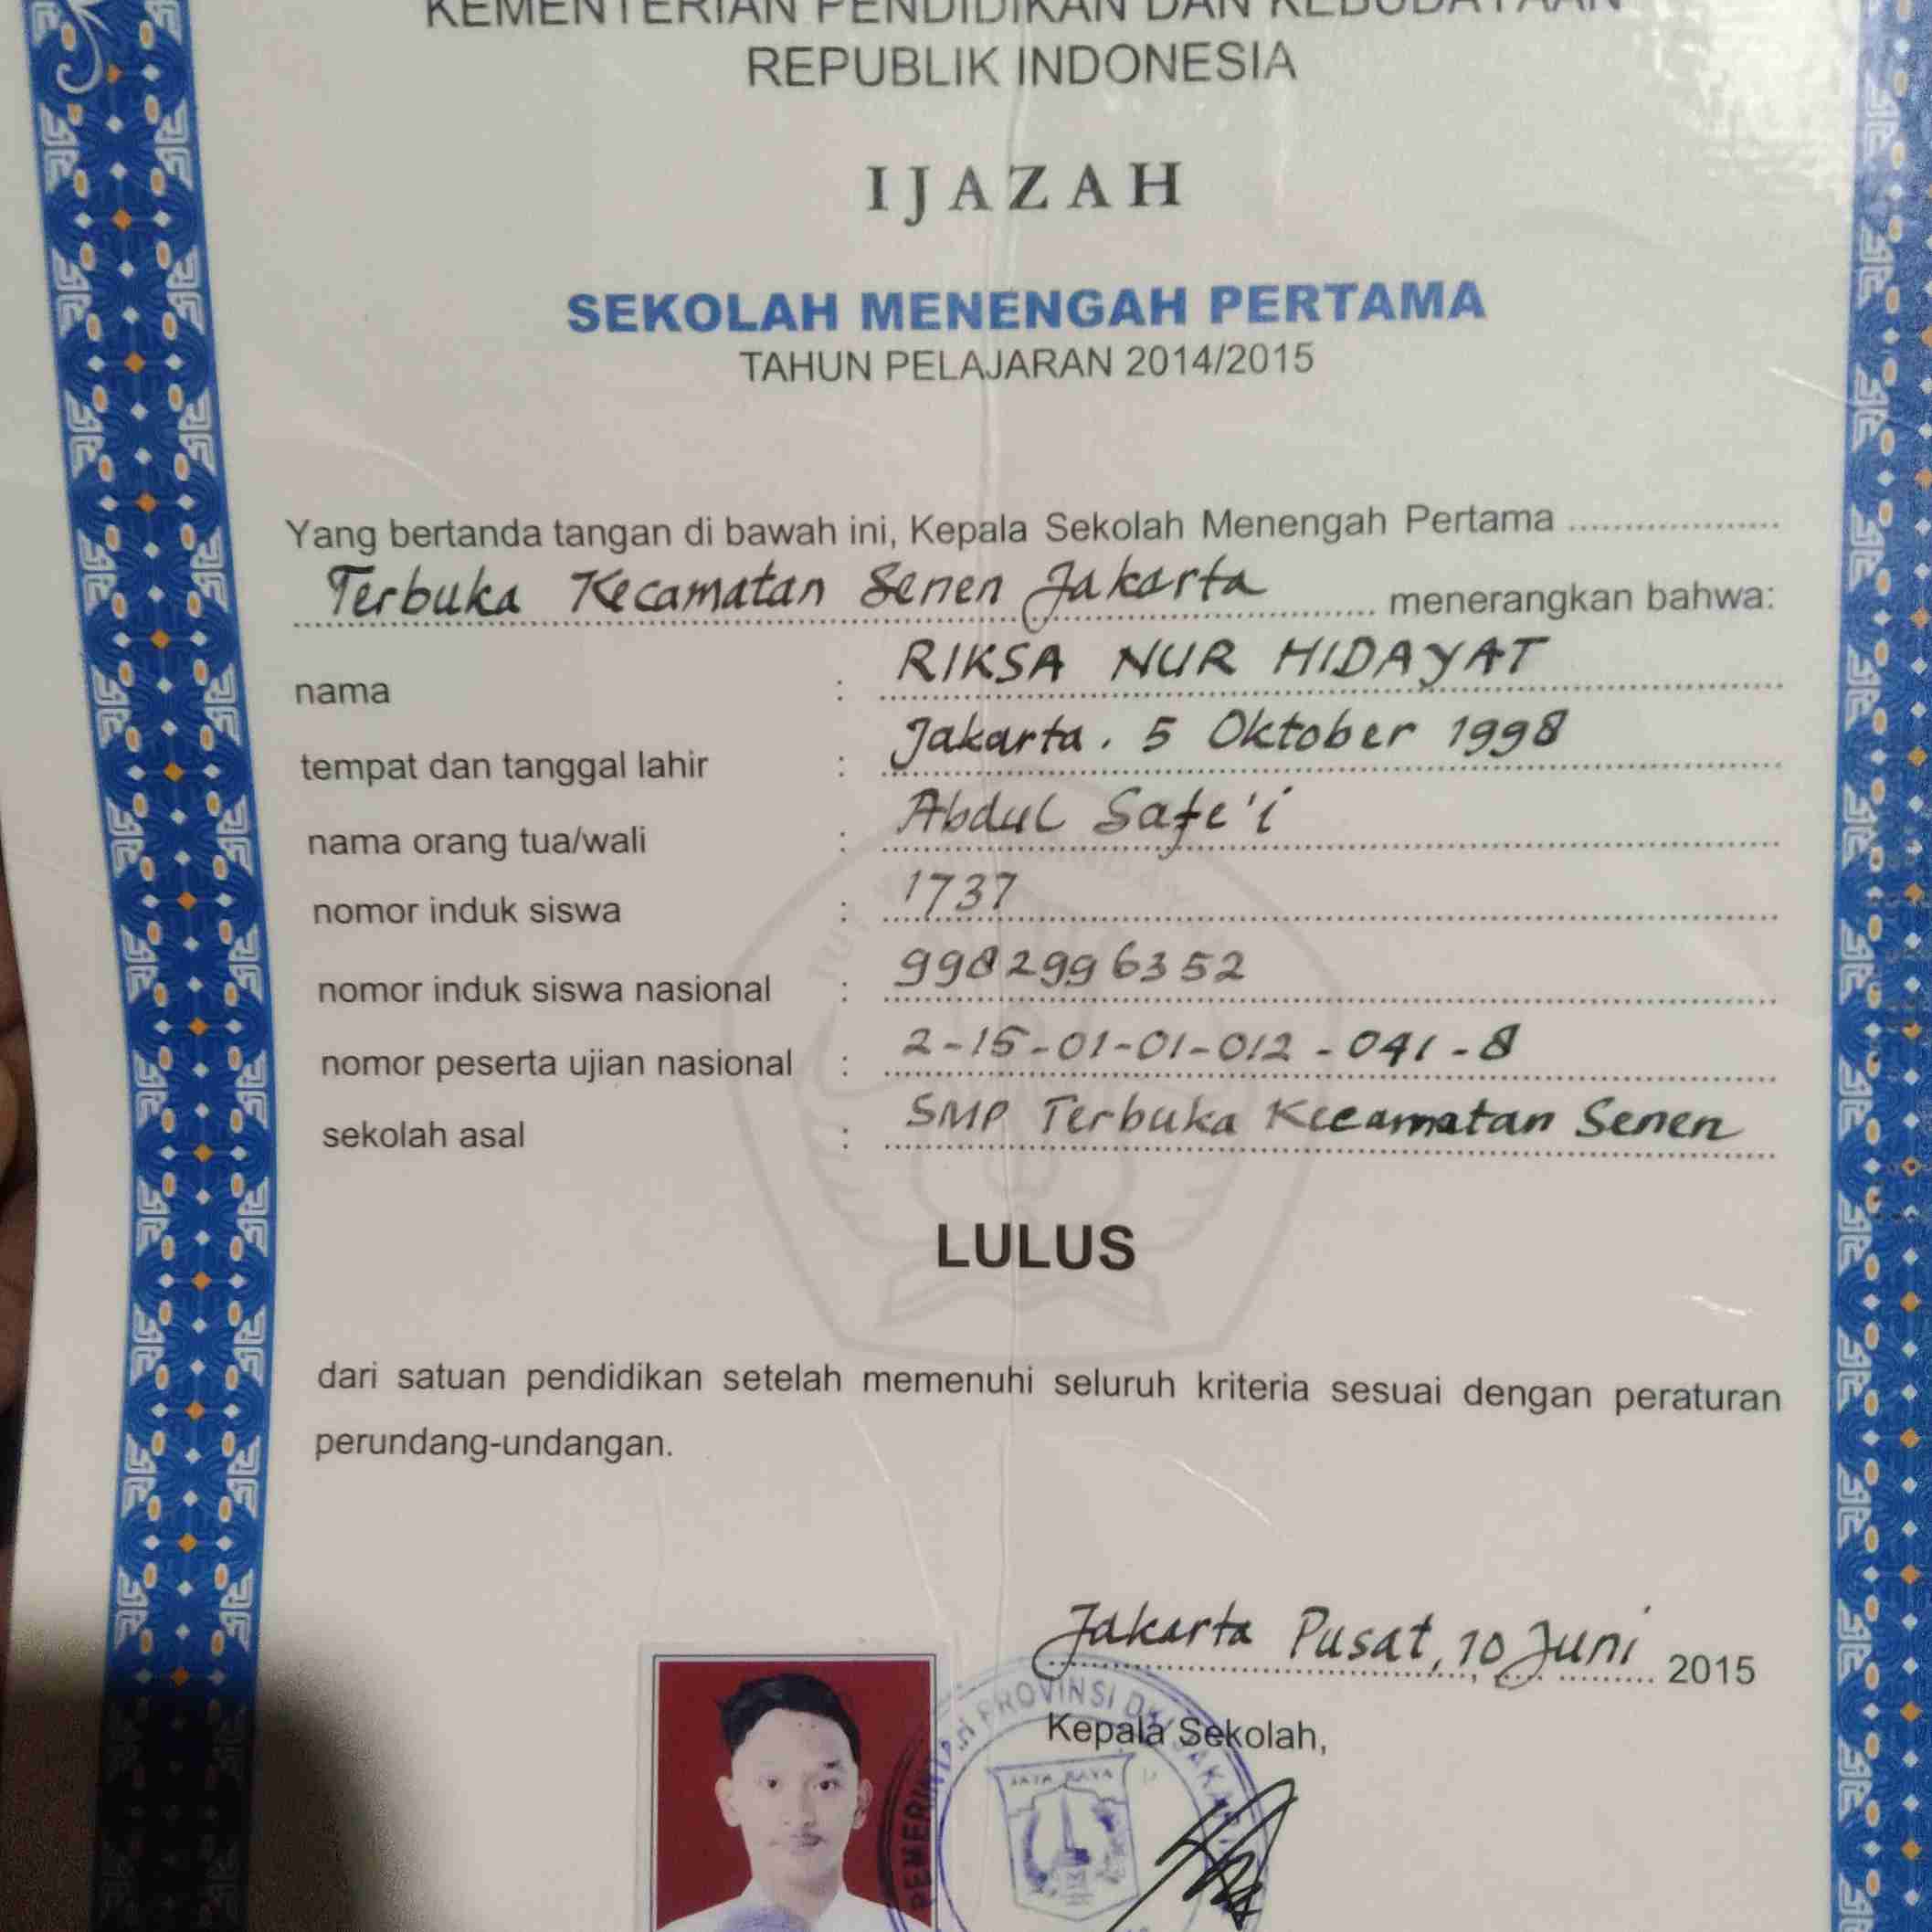 KEMENTERIAN PENDIDIKAN DAN KEBUDAYAAN
REPUBLIK INDONESIA
IJAZAH
SEKOLAH MENENGAH PERTAMA
TAHUN PELAJARAN 2014/2015
Yang bertanda tangan di bawah ini, Kepala Sekolah Menengah Pertama ...................
Terbuka Kecamatan Senen Jakarta menerangkan bahwa:
nama : RIKSA NUR HIDAYAT
tempat dan tanggal lahir : Jakarta, 5 Oktober 1998
nama orang tua/wali : Abdul Safe'i
nomor induk siswa : 1737
nomor induk siswa nasional : 9982996352
nomor peserta ujian nasional : 2-15-01-01-012-041-8
sekolah asal : SMP Terbuka Kecamatan Senen
LULUS
dari satuan pendidikan setelah memenuhi seluruh kriteria sesuai dengan peraturan
perundang-undangan.
Jakarta Pusat, 10 Juni 2015
Kepala Sekolah,
PEMERINTAH PROVINSI DKI JAKARTA
JAYA RAYA